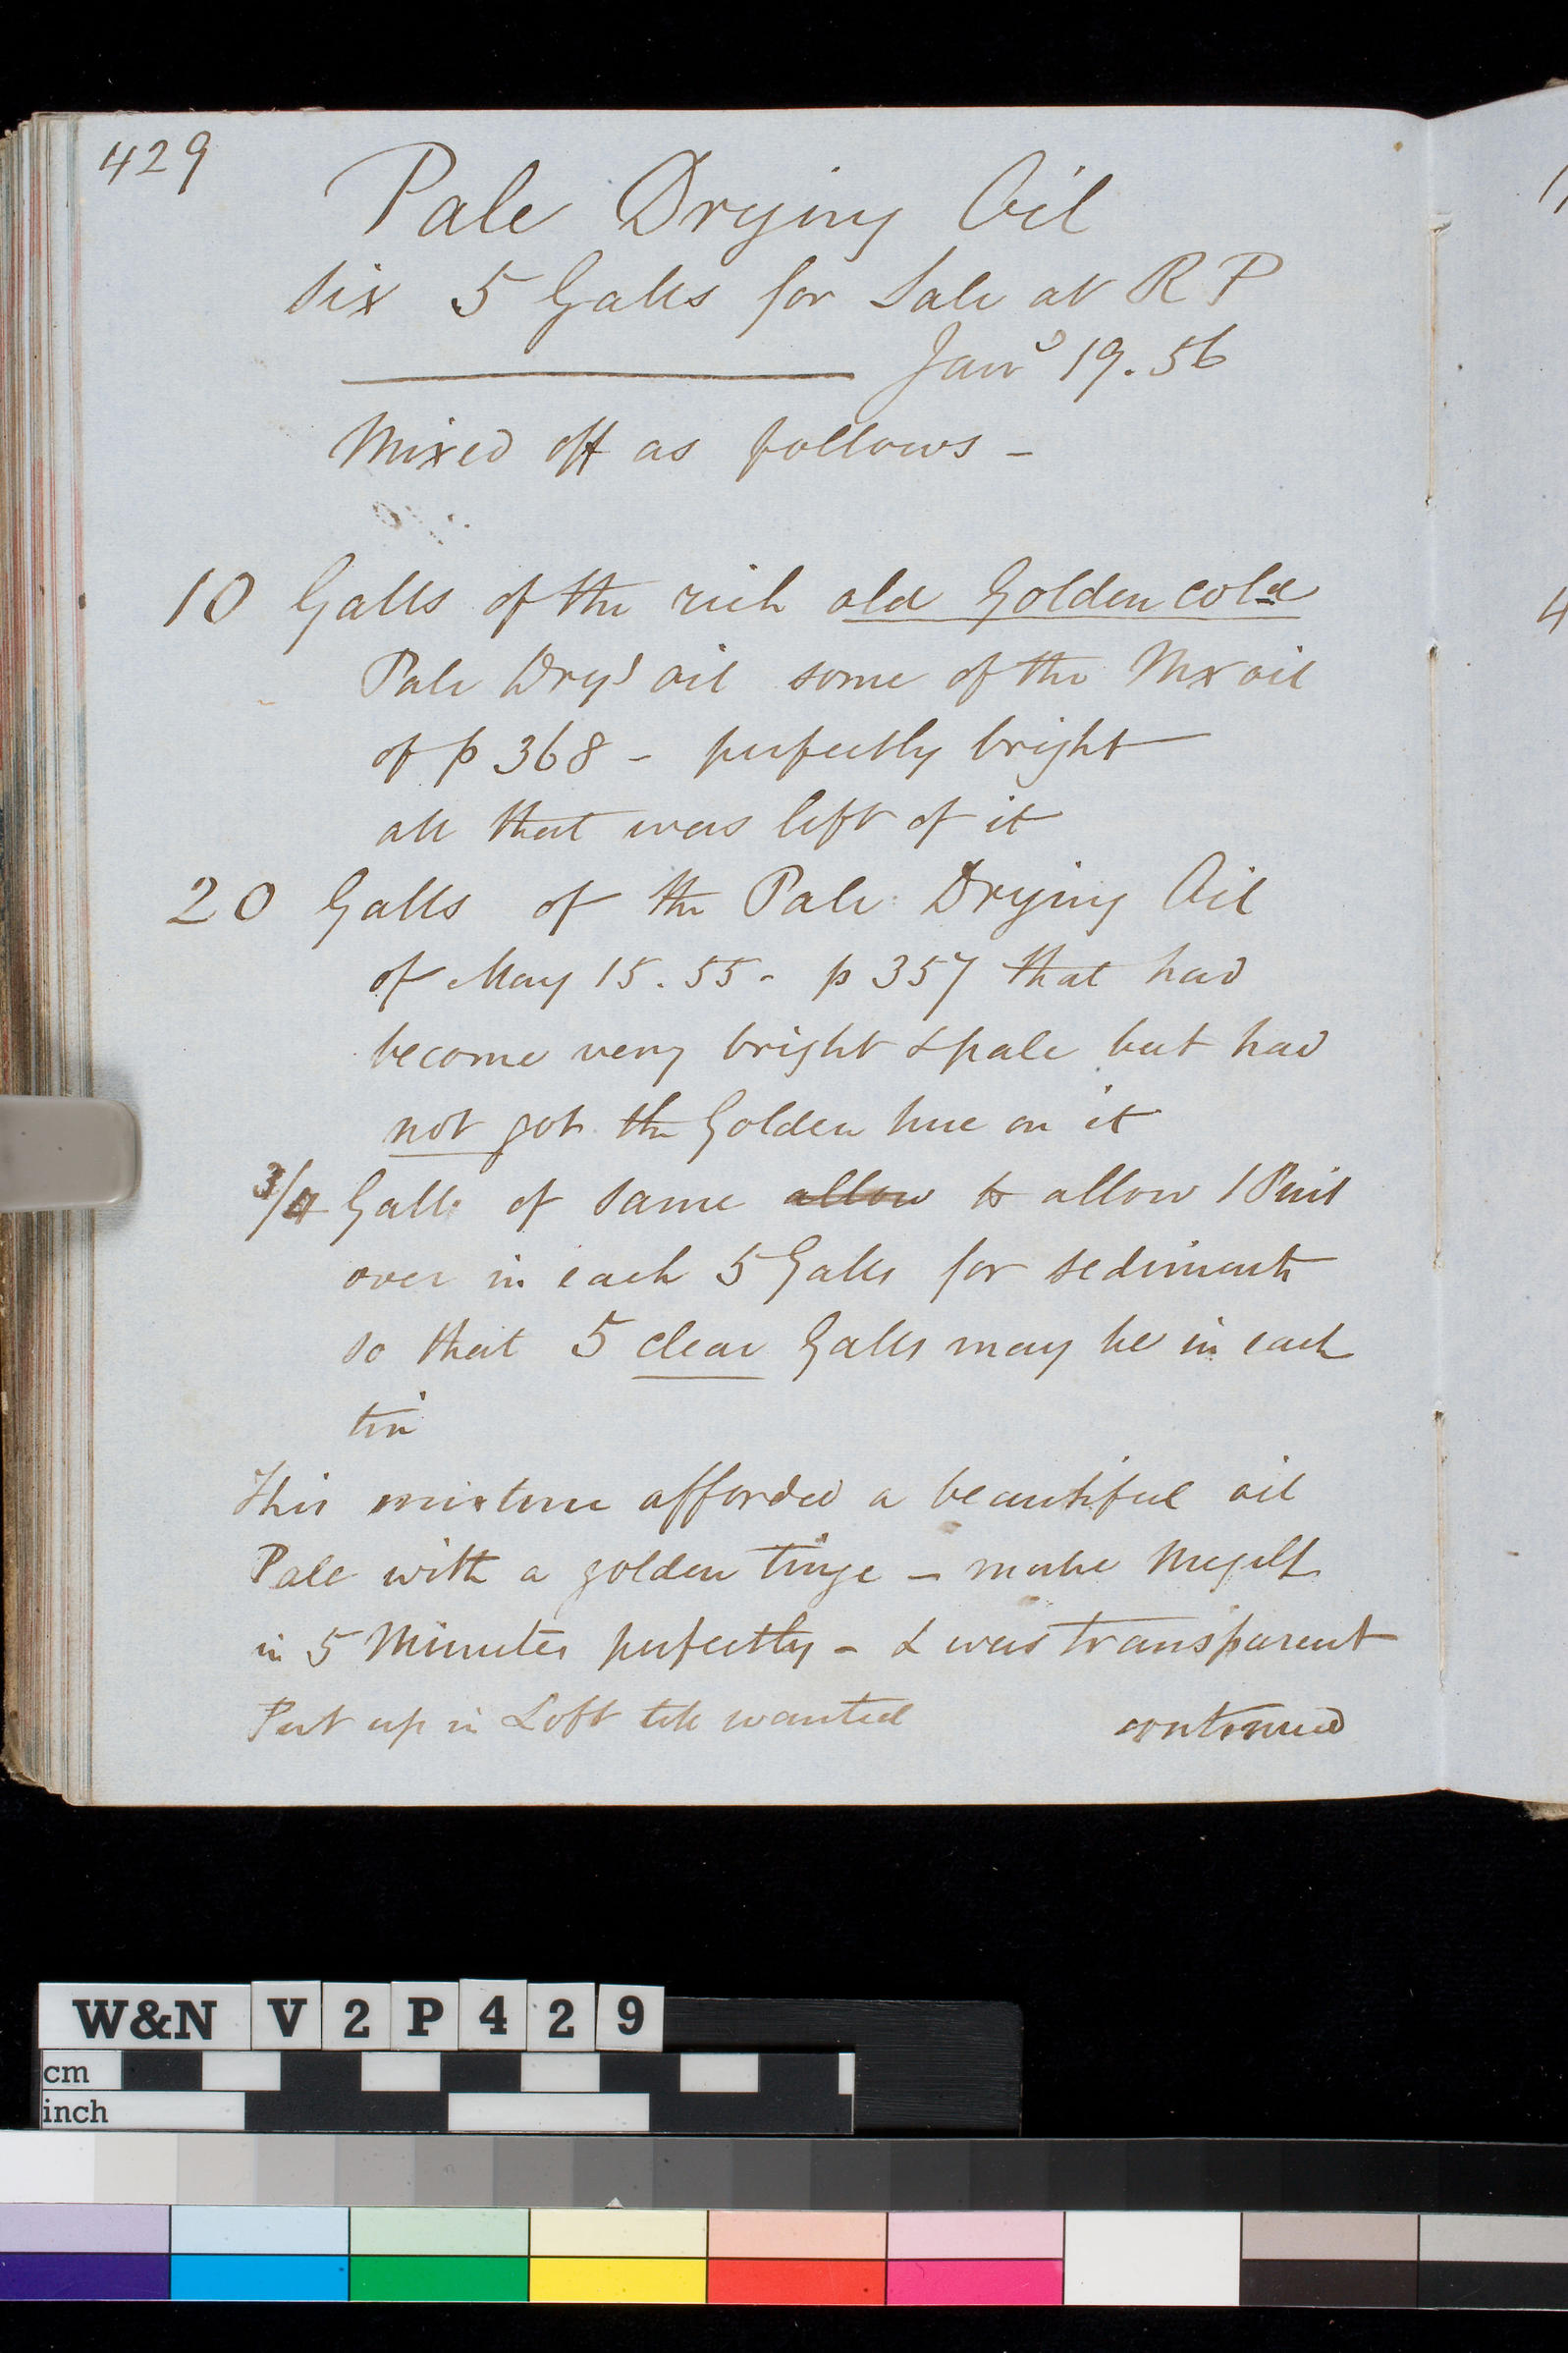 429
Pale Drying Oil
six 5 Galls for Sale at R P
Jany 19. 56
Mixed off as follows -
10 Galls of the rich old Golden cold
Pale Dryg oil some of the Mx oil
of p 368 - perfectly bright
all that was left of it
20 Galls of the Pale Drying Oil
of May 15. 55 - p 357 that had
become very bright & pale but had
not got the Golden hue on it
3/4 Gall of same allow to allow 1 Pint
over in each 5 Galls for sediment
so that 5 clear Galls may be in each
tin
This mixture afforded a beautiful oil
Pale with a golden tinge - make Megilt
in 5 Minutes perfectly - & was transparent
Put up in Loft till wanted continued
W&N V 2 P 4 2 9
cm
inch